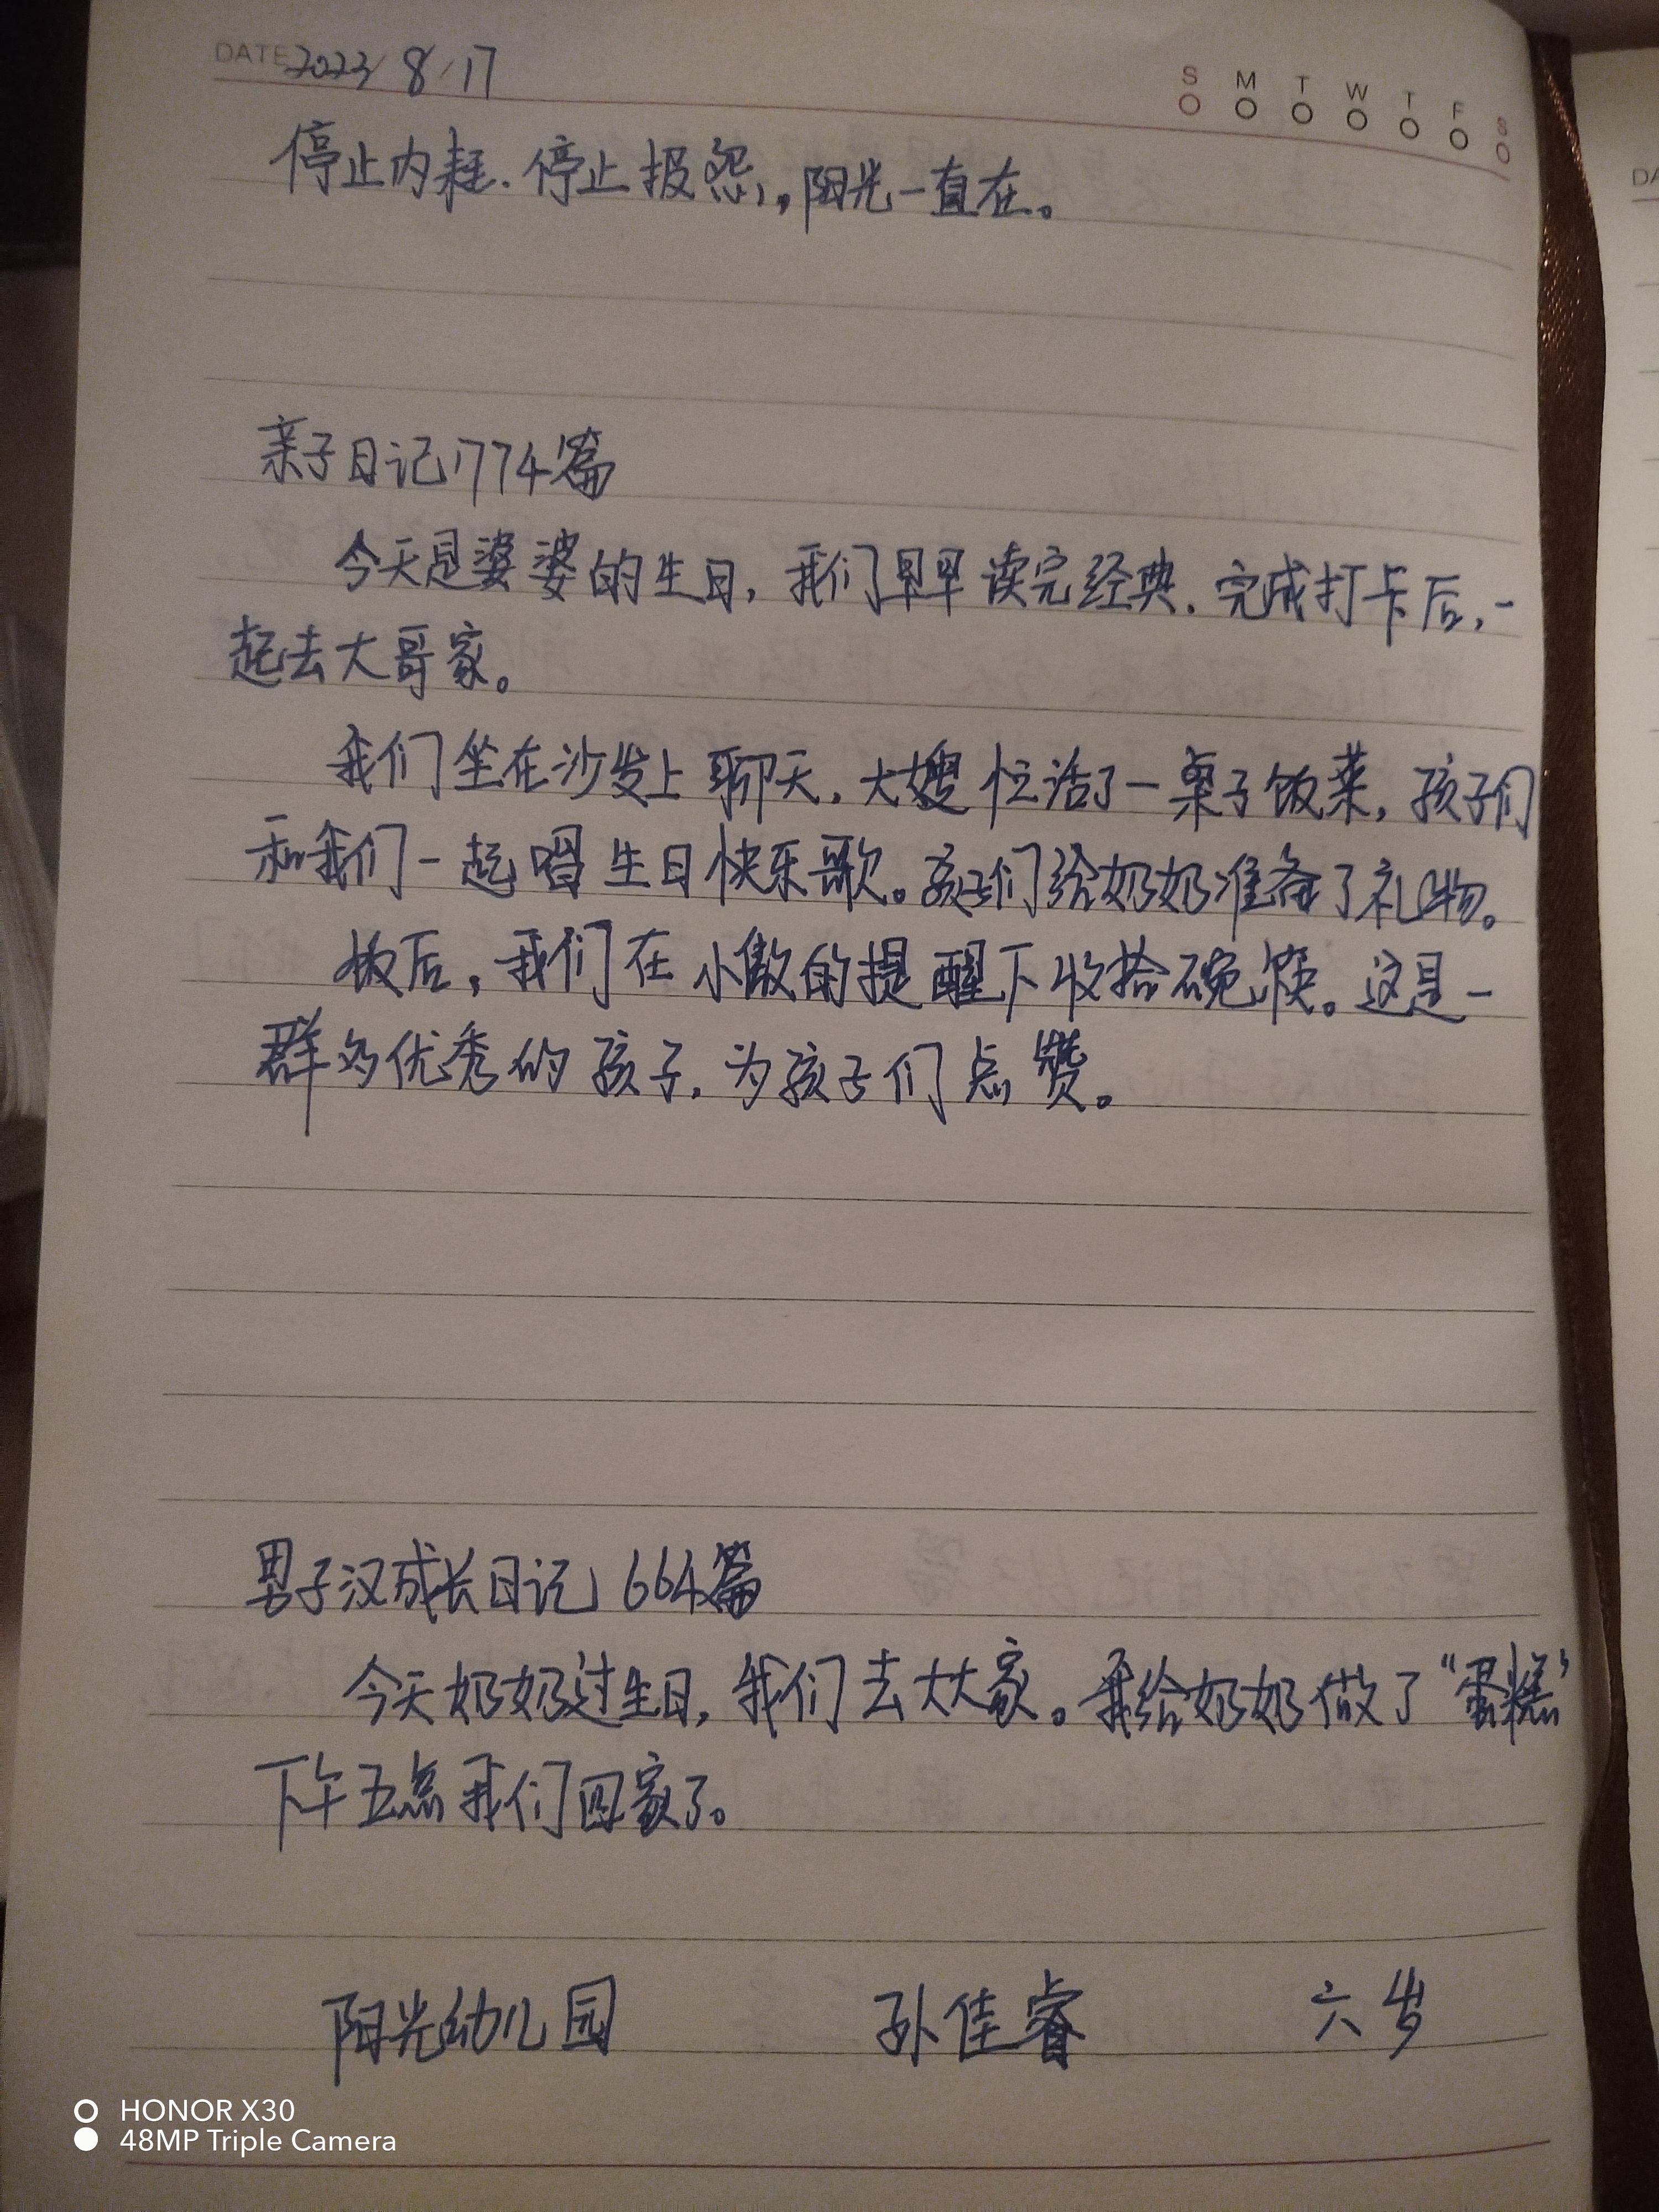 DATE 2023/8/17
S M T W T F S
停止内耗.停止报怨,。阳光一直在。
亲子日记1774篇
今天是婆婆的生日，我们早早读完经典.完成打卡后，一
起去大哥家。
我们坐在沙发上聊天，大嫂忙活了一桌子饭菜，孩子们
和我们一起唱生日快乐歌。孩子们给奶奶准备了礼物。
饭后，我们在小傲的提醒下收拾碗筷。这是一
群多优秀的孩子，为孩子们点赞。
男子汉成长日记664篇
今天奶奶过生日，我们去大大家。我给奶奶做了“蛋糕”
下午五点我们回家了。
阳光幼儿园 孙佳睿 六岁
HONOR X30
48MP Triple Camera